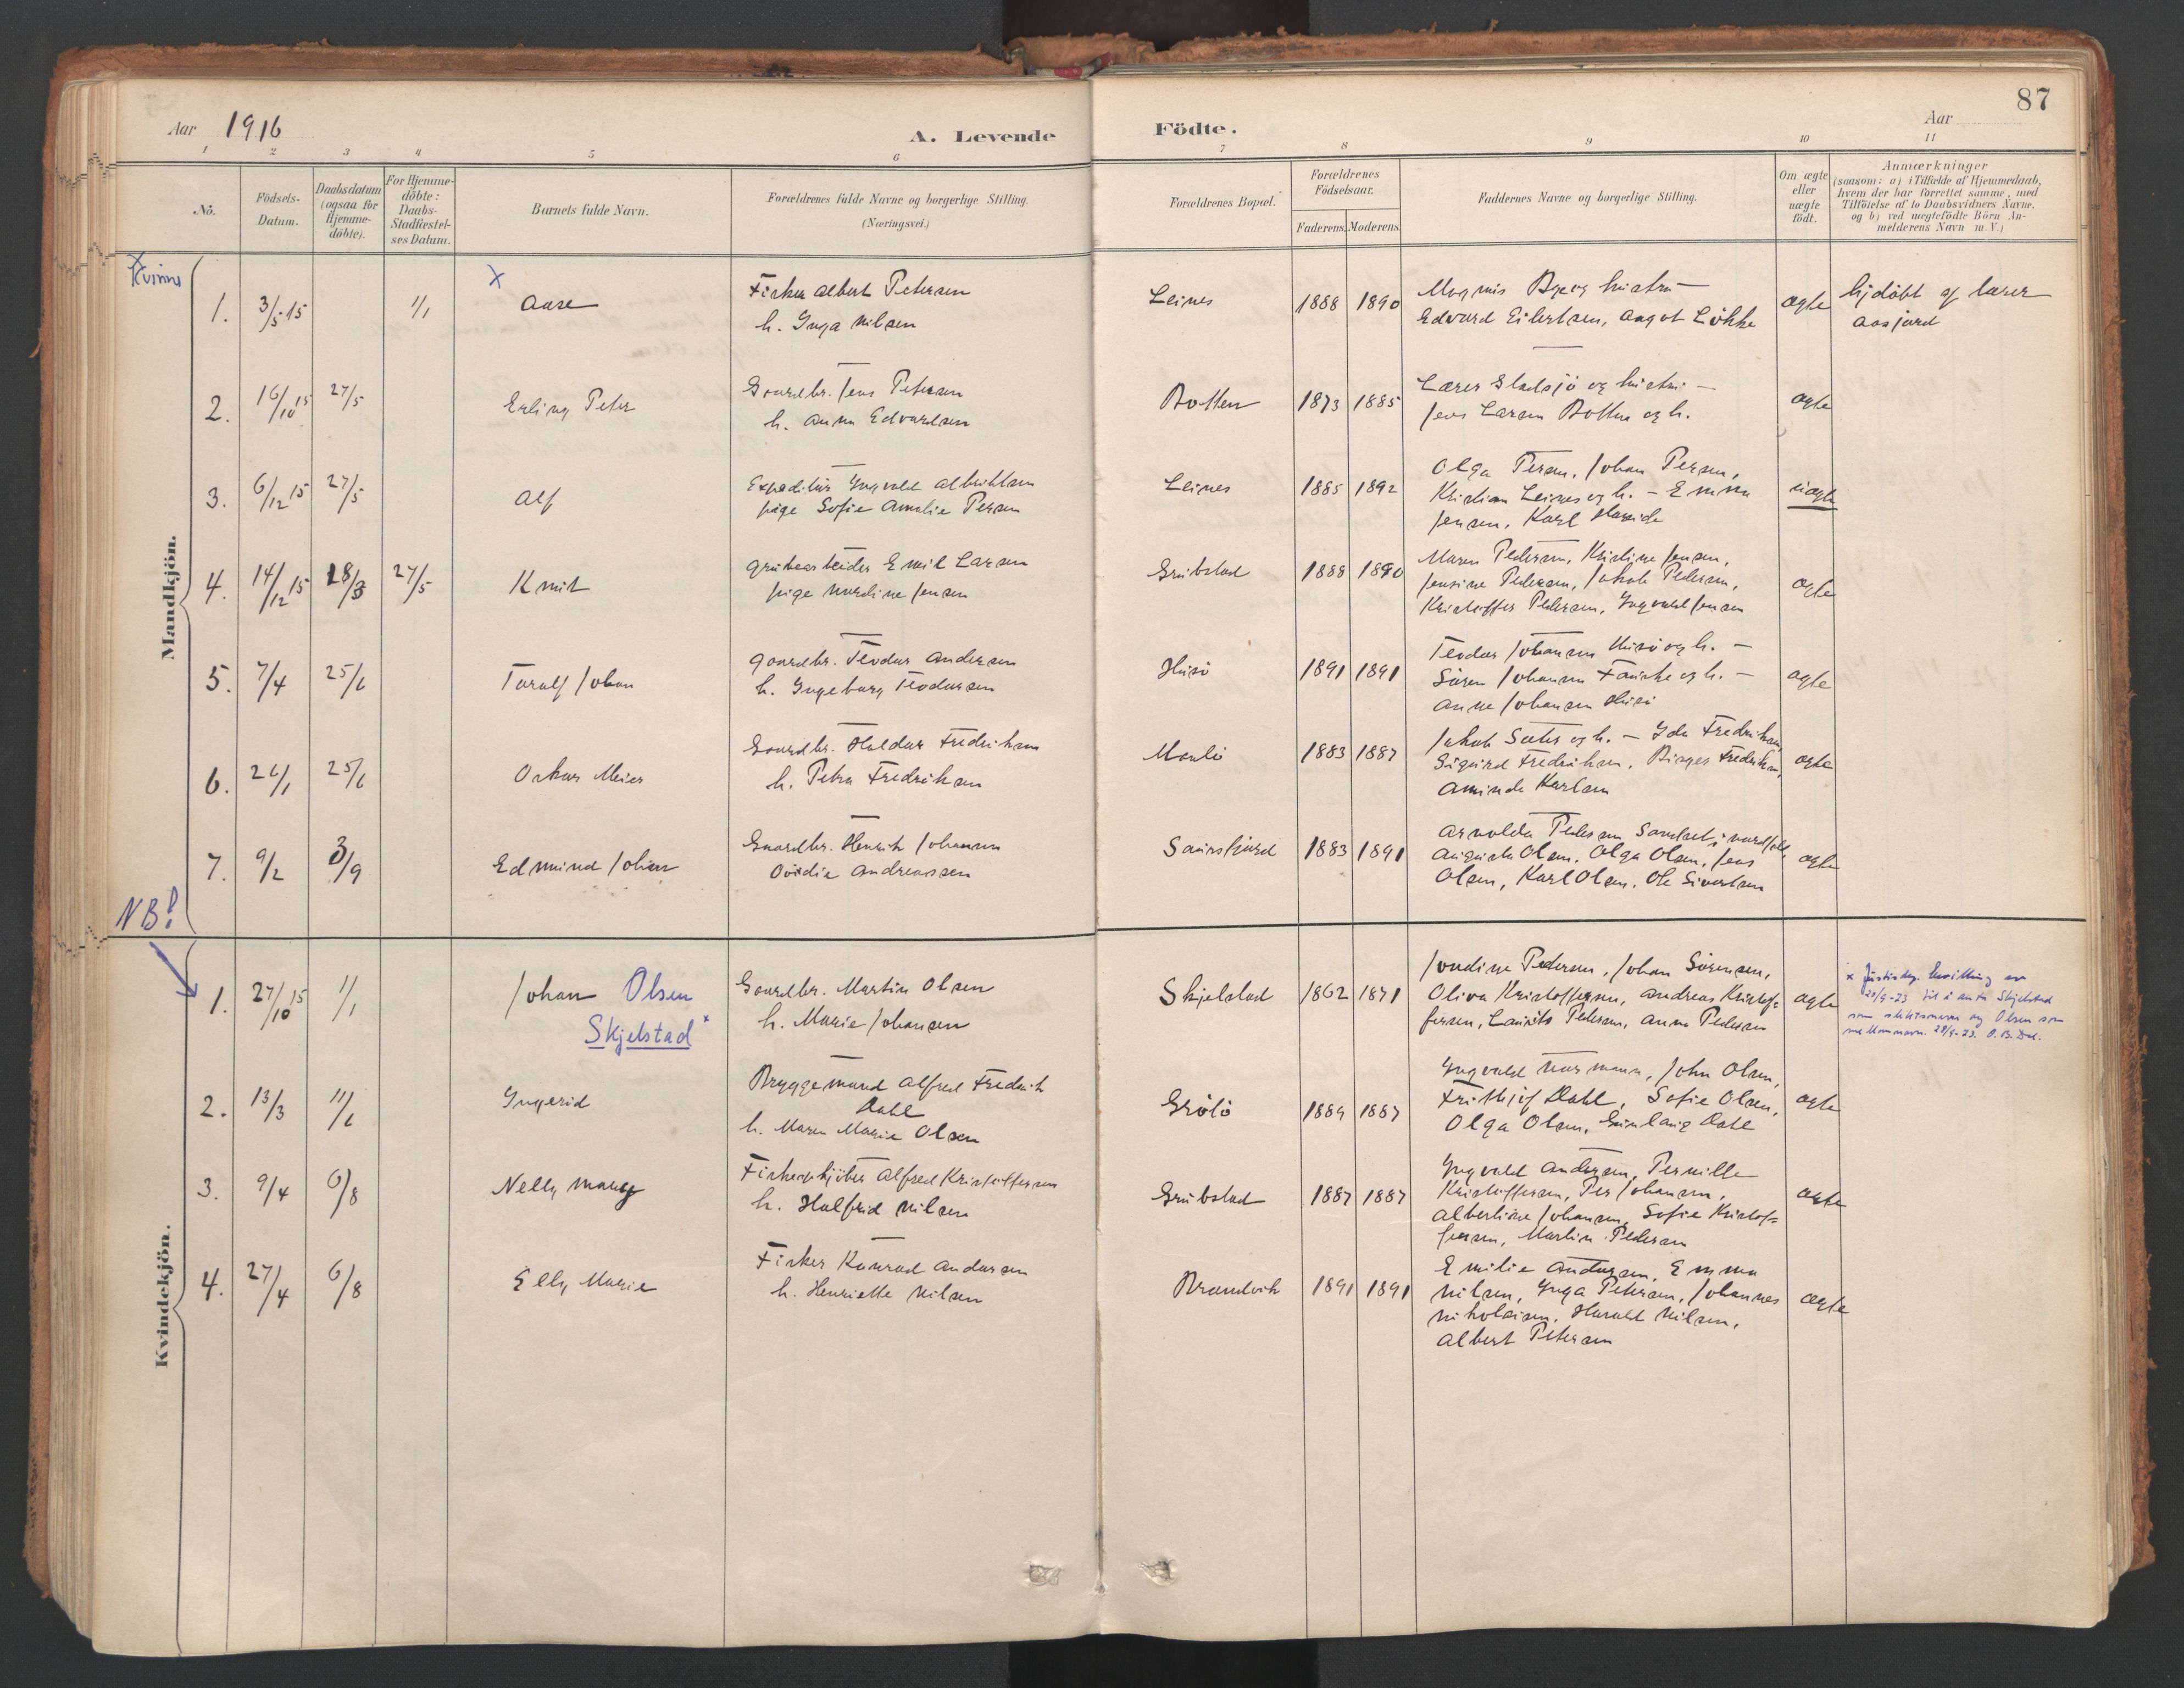 87
Aar 1916
A. Levende
Födte.
Aar
1 2 3 4 5 6 7 8 9 10 11
No.
Födsels-
Datum.
Daabsdatum
(ogsaa for
Hjemme-
döbte).
For Hjemme-
döbte:
Daabs-
Stadfæstel-
ses Datum.
Barnets fulde Navn.
Forældrenes fulde Navne og borgerlige Stilling.
(Næringsvei.)
Forældrenes Bopæl.
Forældrenes
Födselsaar.
Faderens. Moderens.
Faddernes Navne og borgerlige Stilling.
Om ægte
eller
uægte
födt.
Anmærkninger
(saasom: a) i Tilfælde af Hjemmedaab,
hvem der har forrettet samme, med
Tilföielse af to Daabsvidners Navne.
og b) ved uægtefödte Börn An-
melderens Navn m. V.)
Mandkjön.
x
Kvinne
x
1. 3/5 15 1/1 Aase
Fisker Albert Petersen
h. Inga Nilsen
Leines 1888 1890
Magnus Bye og hustru —
Edvard Eilertsen, Angot Løkke
ægte
hjdöbt af lærer
Aasjord
2. 16/10 15 27/5 Erling Peter
Gaardbr. Jens Petersen
h. Anna Edvardsen
Botten 1873 1885
Lærer Sladsjö og hustru —
Jens Larsen Botten og h.
ægte
3. 6/12 15 27/5 Alf
Expeditör Ingvald Albriktsen
pige Sofie Amalie Persen
Leines 1885 1892
Olga Persen, Johan Persen,
Kristian Leines og h. — Emma
Jensen, Karl
uægte
4. 14/12 15 18/3 27/5 Knut
Grubearbeider Emil Larsen
pige Nordine Jensen
Grubstad 1888 1890
Maren Pedersen, Kristine Jensen,
Jensine Pedersen, Jakob Pedersen,
Kristoffer Pedersen, Ingvald Jensen
ægte
5. 7/4 25/6 Toralf Johan
Gaardbr. Teodor Andersen
h. Ingeborg Teodorsen
Husö 1891 1891
Teodor Johansen Husö og h. —
Sören Johansen Fauske og h. —
Anne Johansen Husö
ægte
6. 26/1 25/6 Oskar Meier
Gaardbr. Haldor Fredriksen
h. Petra Fredriksen
Manlö 1883 1887
Jakob Sæter og h. — Ida Fredriksen,
Sigurd Fredriksen, Birger Fredriksen,
Aminda Karlsen
ægte
7. 9/2 3/9 Edmund Johan
Gaardbr. Henrik Johansen
Ovidia Andreassen
1883 1891
Arnolda Pedersen
Augusta Olsen, Olga Olsen, Jens
Olsen, Karl Olsen, Ole Sivertsen
ægte
NB!
Kvindekjön.
1. 27/10 15 1/1 Johan Olsen
Skjelstad x
Gaardbr. Martin Olsen
h. Marie Johansen
Skjelstad 1862 1871
Jondine Pedersen, Johan Sörensen,
Oliva Kristoffersen, Andreas Kristof-
fersen, Laurits Pedersen, Anna Pedersen
ægte
x Justisdep. bevilling av
20/9-23 til å anta Skjelstad
som slektsnavn og Olsen som
mellomnavn. 28/9-23. O. B.
2. 13/3 11/6 Ingerid
Bryggemand Alfred Fredrik
Dahl
h. Maren Marie Olsen
Grötö 1889 1887
Ingvald Normann, John Olsen,
Frithjof Dahl, Sofie Olsen,
Olga Olsen, Gunlaug Dahl
ægte
3. 9/4 6/8 Nelly Mary
Fiskeopkjöber Alfred Kristoffersen
h. Halfrid Nilsen
Grubstad 1887 1887
Ingvald Andersen, Pernille
Kristoffersen, Per Johansen,
Albertine Johansen, Sofie Kristof-
fersen, Martin Pedersen
ægte
4. 27/4 6/8 Elly Marie
Fisker Konrad Andersen
h. Henriette Nilsen
Brandvik 1891 1891
Emilie Andersen, Emma
Nilsen, Inga Petersen, Johannes
Nikolaisen, Harald Nilsen,
Albert Petersen
ægte